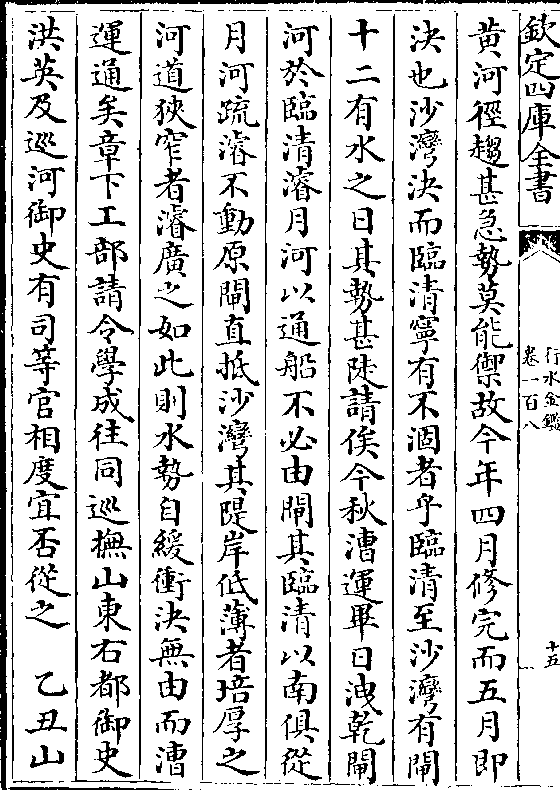 欽定四庫全書
行水金鑑
卷一百八
十五
黄河徑趨甚急勢莫能禦故今年四月修完而五月即
決也沙灣決而臨清寧有不涸者乎臨清至沙灣有閘
十二有水之日其勢甚陡請俟今秋漕運畢日洩乾閘
河於臨清濬月河以通船不必由閘其臨清以南俱從
月河疏濬不動原閘直抵沙灣其隄岸低薄者培厚之
河道狹窄者濬廣之如此則水勢自緩衝決無由而漕
運通矣章下工部請令學成往同巡撫山東右都御史
洪英及巡河御史有司等官相度宜否從之　乙丑山